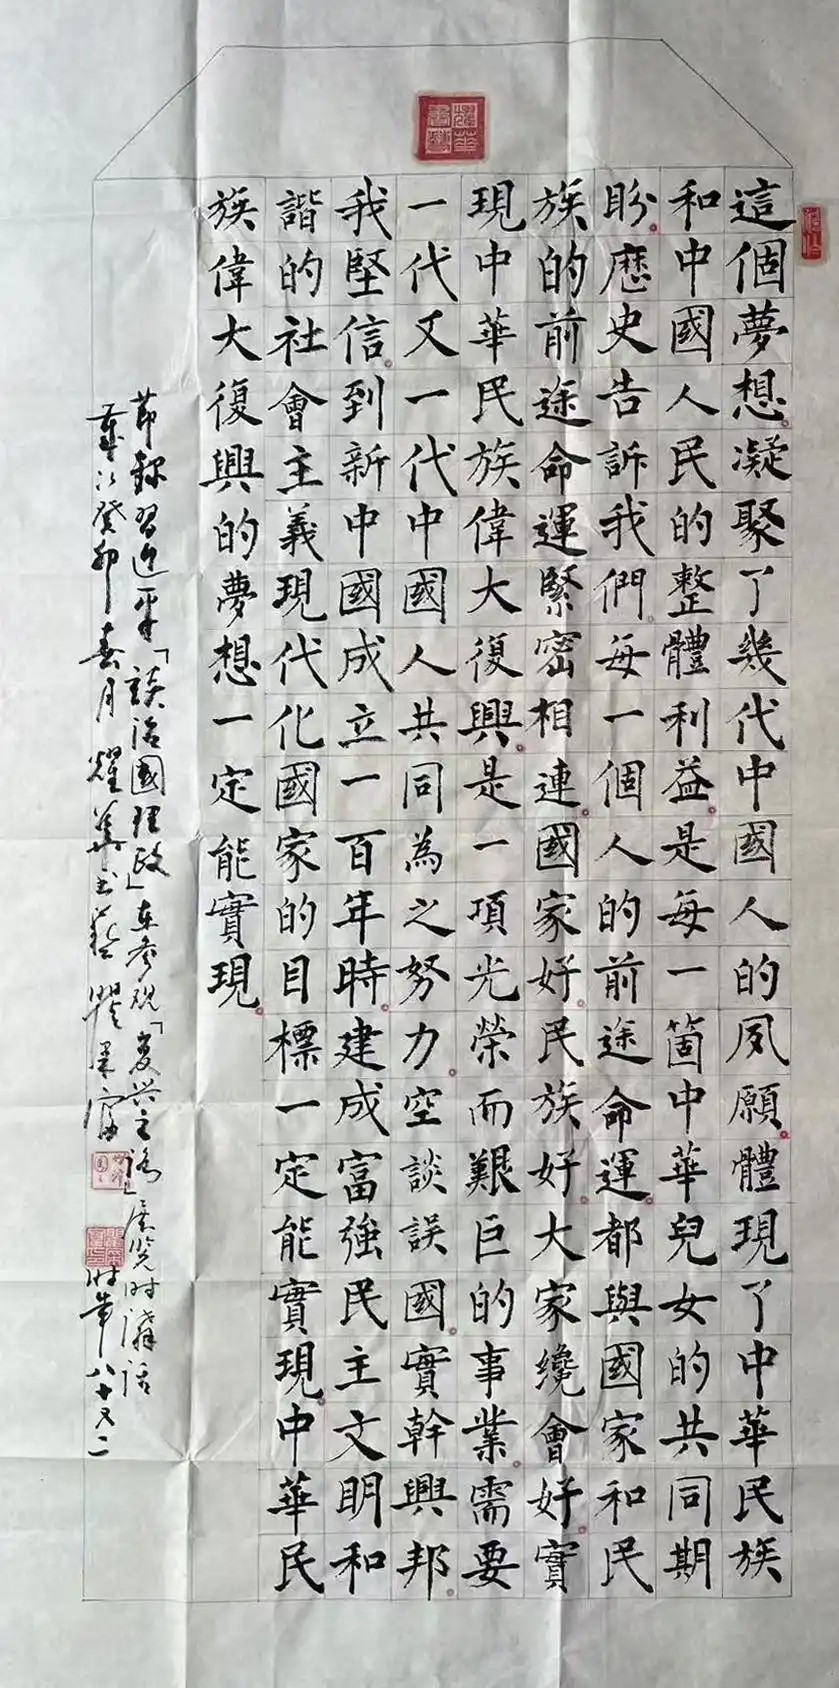 這個夢想凝聚了幾代中國人的夙願體現了中華民族
和中國人民的整體利益是每一箇中華兒女的共同期
盼歷史告訴我們每一個人的前途命運都與國家和民
族的前途命運緊密相連國家好民族好大家纔會好實
現中華民族偉大復興是一項光榮而艱巨的事業需要
一代又一代中國人共同為之努力空談誤國實幹興邦
我堅信到新中國成立一百年時建成富強民主文明和
諧的社會主義現代化國家的目標一定能實現中華民
族偉大復興的夢想一定能實現
節錄習近平「談治國理政」在参观「复兴之路」展览时講話
歲次癸卯春月耀華书藝 墨 时年八十又二